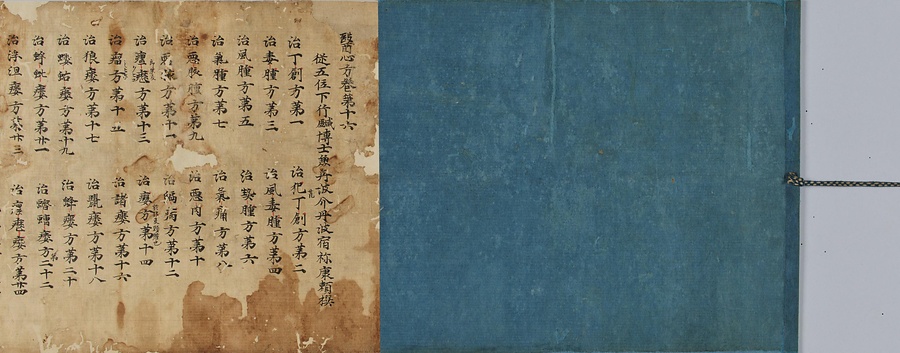 醫心方卷第十六
從五位下行鍼博士兼丹波介丹波宿祢康頼撰
治丁創方第一 治犯丁創方第二
治毒腫方第三 治風毒腫方第四
治風腫方第五 治熱腫方第六
治氣腫方第七 治氣痛方第八
治惡脉腫方第九 治惡肉方第十
治 方第十一 治 方第十二
治瘰癧方第十三 治癭方第十四
治瘤方第十五 治諸瘻方第十六
治狼瘻方第十七 治鼠瘻方第十八
治螻蛄瘻方第十九 治蜂瘻方第二十
治蚍蜉瘻方第廿一 治蠐螬瘻方第二十二
治浮沮瘻方第廿三 治瘰癧瘻方第廿四